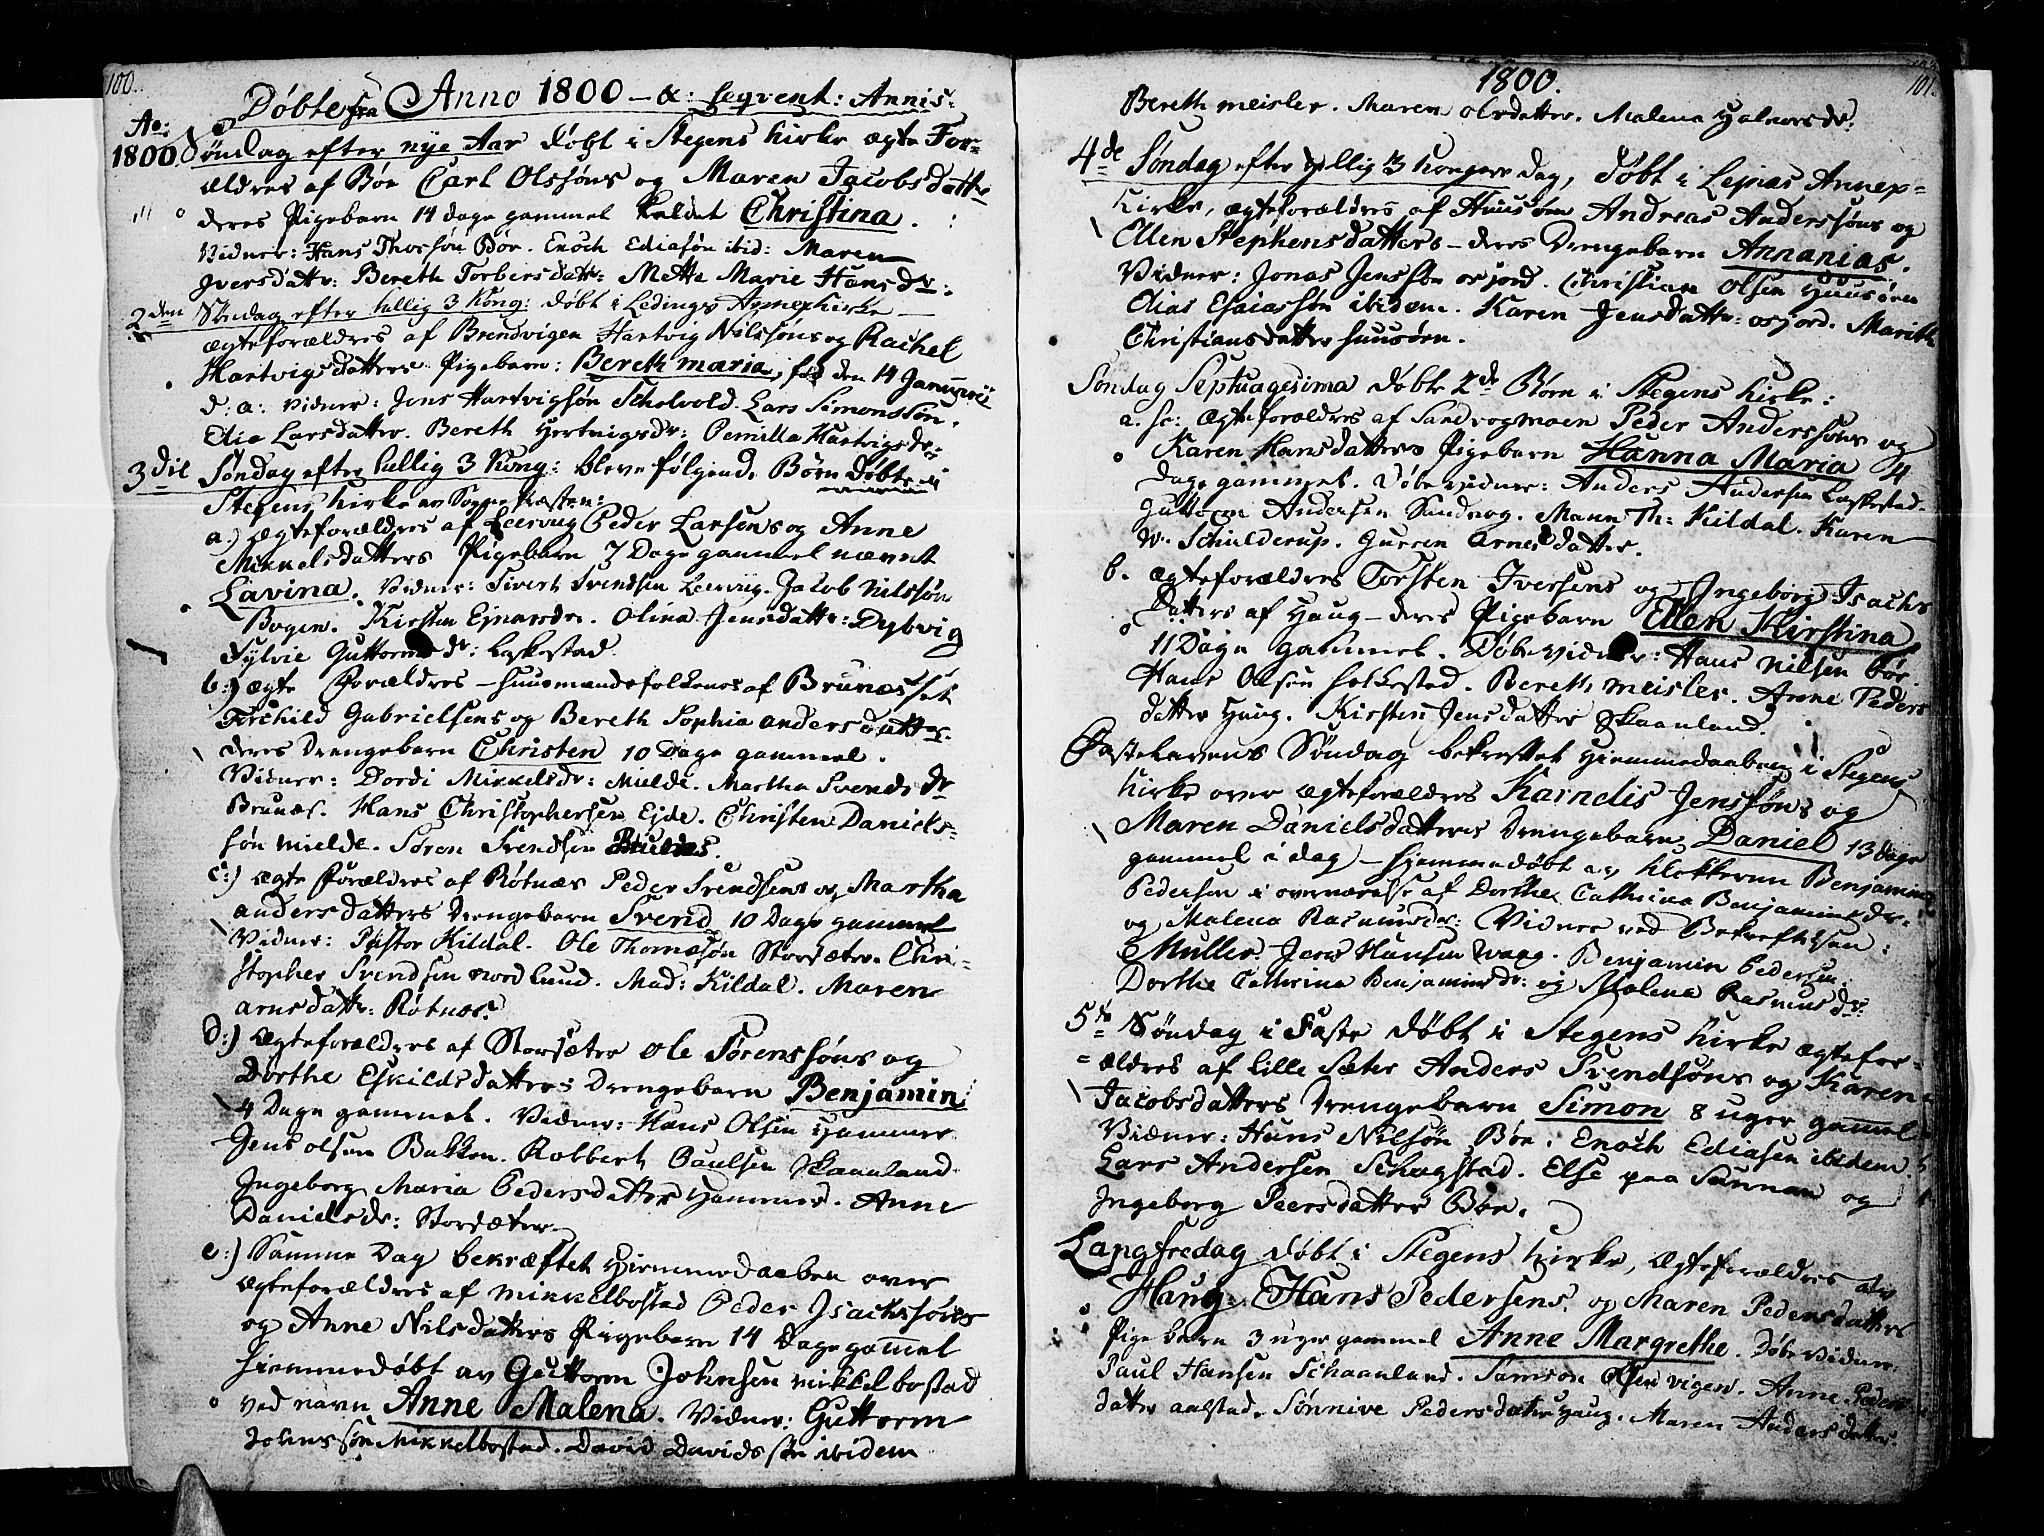 100.
Døbte fra Anno 1800 – &: seqvent: Annis:
Ao:
1800. Søndag efter nye Aar døbt i Stegens Kirke ægte For-
ældres af Bøe Carl Olssøns og Maren Jacobsdatter
deres Pigebarn 14 dage gammel kaldet Christina.
Vidner: Hans Thorsøn Bør. Enoch Ediasøn ibid: Maren
Iversdatr: Bereth Torbersdatr: Mette Marie Hansdr:
2den Søndag efter hellig 3 Kong: døbt i Ledings Annexkirke
ægteforældres af Brendvigen Hartvig Nilssøns og Rachel
Hartvigsdatters Pigebarn: Bereth maria, fød den 14 Januarii
d: a: Vidner: Jens Hartvigsøn Scholvold. Lars Simonssøn.
Elia Larsdatter. Bereth Hertvigsdr: Pernilla Hartvigsdr:
3die Søndag efter hellig 3 Kong: bleve følgende Børn døbte i
Stegens Kirke av Sogne Præsten:
a) ægteforældres af Leervug Peder Larsens og Anne
Mikkelsdatters Pigebarn 7 Dage gammel nævnt
Lavina. Vidner: Sivert Svendsen Leervug. Jacob Nilssøn
Bogen. Kirsten Ejnarsdr. Olina Jensdatter: Dybvig
Sylvie Guttormsdr: Laskestad.
b:) ægte Forældres – huusmandsfolkenes af Brunæsset
Torchild Gabrielsens og Bereth Sophia andersdatters
deres Drengebarn Christen 10 Dage gammel.
Vidner: Dordi Mikkelsdr: Mielde. Martha Svendsdr
Brunæs. Hans Christophersen Ejde. Christen Daniels-
søn mielde. Søren Svendsen Brunæs.
c:) ægte Forældres af Røtnæs Peder Svendsens og Martha
andersdatters Drengebarn Svend 10 Dage gammel
Vidner: Pastor Kildal. Ole Thomæsøn Storsæter. Chri-
stopher Svendsen nordlund. Mad: Kildal. Maren
arnsdatter: Røtnæs.
d:) Ægteforældres af Storsæter ole Sørenssøns og
Dorthe Eskildsdatters Drengebarn Benjamin
4 Dage gammel. Vidner: Hans Olsen Hammer
Jens olsen Bakken. Robbert Paulsen Skaanland.
Ingeborg Maria Pedersdatter Hammer. Anne
Danielsdr: Storsæter.
e:) Samme Dag bekræftet Hiemmedaaben over
ægteforældres af Mikkelbostad Peder Isachsøns
og Anne Nilsdatters Pigebarn 14 Dage gammel
hiemmedøbt av Guttorm Johnsen mikkelbostad
ved navn Anne Malena. Vidner: Guttorm
Johnssøn Mikkelbostad. David Davidssøn ibidem
1800.
101.
Bereth meisler. Maren olsdatter. Malena Halvorsdr:
4de Søndag efter hellig 3 Konger Dag, døbt i Leines Annex-
Kirke, ægteforældres af Huusøen Andreas Anderssøns og
Ellen Stephensdatters – deres Drengebarn Annanias.
Vidner: Jonas Jenssøn osjord. Christian Olsen Huusøen
Elias Esaiassøn ibidem. Karen Jensdatter: osjord. Marith
Christiansdatter huusøen.
Søndag Septuagesima døbte 2de Børn i Stegens Kirke:
a. ægteforældres af Sandvogmoen Peder Anderssøns og
Karen Hansdatters Pigebarn Hanna Maria 4
Dage gammel. Døbevidner: Anders Andersen Laskestad.
Guttorm Andersen Sandvog. Maren Th: Kildal. Karen
W. Schielderup. Gurren Arnesdatter.
b. ægteforældres Torsten Iversens og Ingeborg Isachs
Datters af Haug – deres Pigebarn Ellen Kirstina
11 Dage gammel. Døbevidner: Hans Nilsen bør.
Hans Olsen holkestad. Bereth meisler. Anne Peders
datter Haug. Kirsten Jensdatter Skaanland.
Fastelavens Søndag bekræftet Hiemmedaaben i Stegens
Kirke over ægteforældres Karnelis Jenssøns og
Maren Danielsdatters Drengebarn Daniel 13 Dage
gammel i dag – hjemmedøbt av Klokkeren Benjamin
Pedersen i overværelse af Dorthe Cathrina Benjaminsdr.
og Malena Rasmusdr: Vidner ved Bekreftelsen:
Müller. Jens Hansen Waag. Benjamin Pedersen.
Dorthe Cathrina Benjaminsdr: og Malena Rasmusdr:
5te Søndag i Faste døbt i Stegens Kirke ægtefor-
ældres af Lille Sæter Anders Svendsøns og Karen
Jacobsdatters Drengebarn Simon 8 uger gammel
Vidner: Hans Nilsøn Bøe. Enoch Ediasen ibidem
Lars Andersen Schagstad. Else paa Sannan og
Ingeborg Peersdatter Bøe.
Langfredag døbt i Stegens Kirke, ægteforældres av
Haug: Hans Pedersens og Maren Pedersdatters
Pigebarn 3 uger gammel Anne Margrethe. Døbevidner.
Paul Hansen Schaanland. Samson Olsen vigen. Anne Peders
datter aalstad. Sønnive Pedersdatter Haug. Maren Andersdatter.